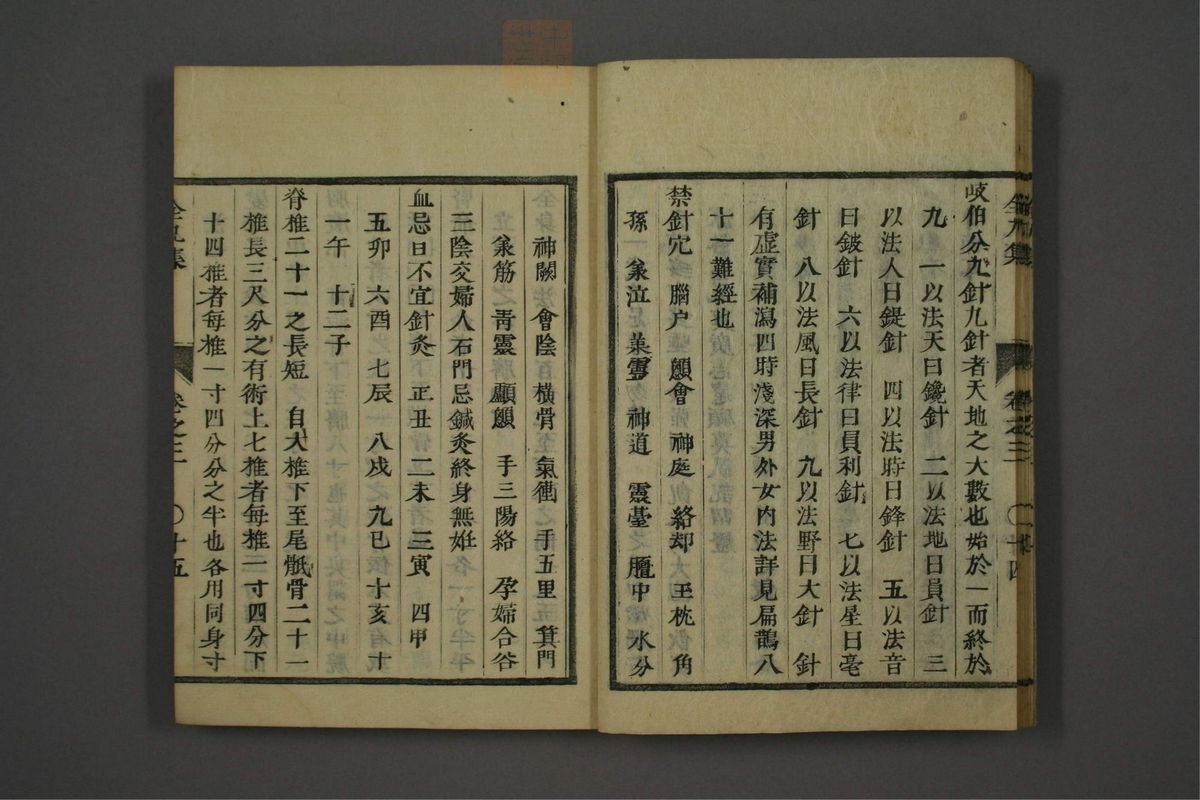 岐伯分九針九針者天地之大數也始於一而終於
九 一以法天曰鑱針 二以法地曰員針 三
以法人曰鍉針 四以法時曰鋒針 五以法音
曰鈹針 六以法律曰員利針 七以法星曰毫
針 八以法風曰長針 九以法野曰大針 針
有虛實補瀉四時淺深男外女內法詳見扁鵲八
十一難經也
禁針穴 腦户 顖會 神庭 絡却 玉枕 角
孫 承泣 神道 靈臺 膻中 水分
神闕 會陰 橫骨 氣衝 手五里 箕門
承筋 青靈 顱顖 手三陽絡 孕婦合谷
三陰交婦人石門忌鍼灸終身無姙
血忌日不宜針灸 正丑 二未 三寅 四申
五卯 六酉 七辰 八戌 九巳 十亥 十
一午 十二子
脊椎二十一之長短 自大椎下至尾骶骨二十一
椎長三尺分之有術上七椎者每椎一寸四分下
十四椎者每椎一寸四分分之半也各用同身寸
全九集 卷之三 〇十五